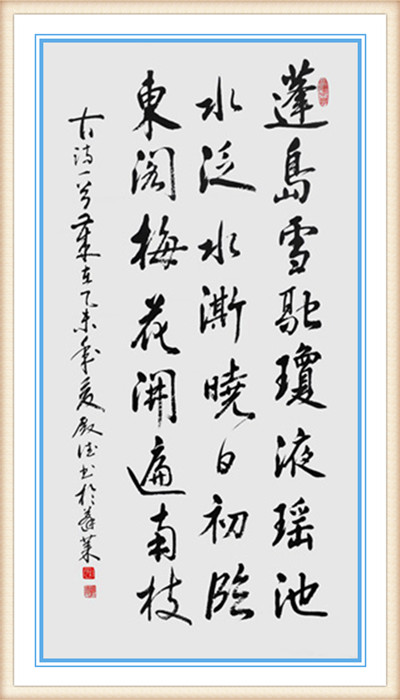 蓬島雪融瓊液瑶池
水泛水澌曉日初臨
東閣梅花開遍南枝
古詩一首歲在乙未年夏德书於蓬莱